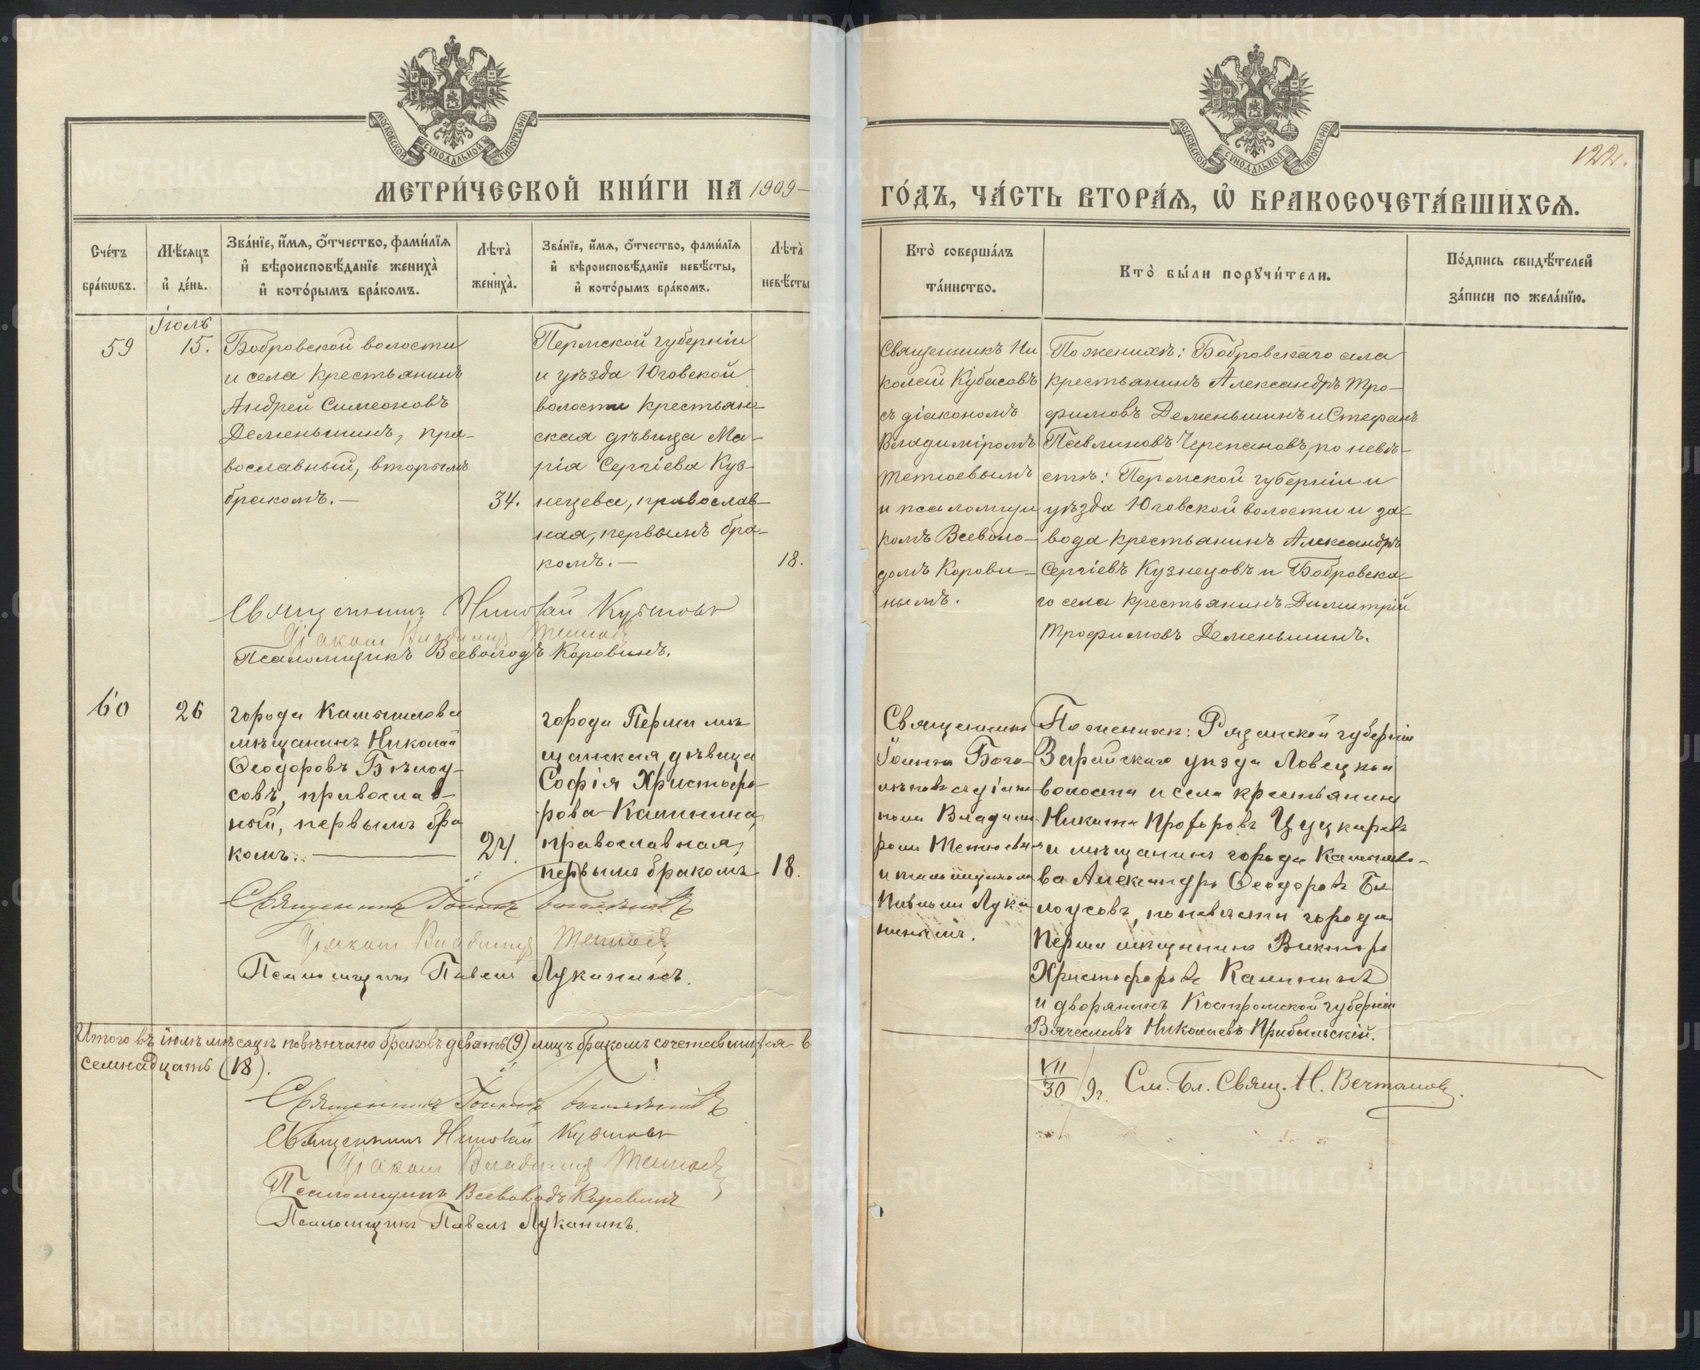 МЕТРИ́ЧЕСКОЙ КНИ́ГИ НА 1909
ГО́ДЪ, ЧА́СТЬ ВТОРА́Ѧ, Ѽ БРАКОСОЧЕТА́ВШИХСѦ.
122.
МОСКОВСКОЙ СѴНОДАЛЬНОЙ ТИПОГРАФІИ
МОСКОВСКОЙ СѴНОДАЛЬНОЙ ТИПОГРАФІИ
Сче́тъ бра́кѡвъ.
Мѣ́сѧцъ и҆ де́нь.
Зва́нїе, и҆́мѧ, ѻ҆́тчество, фами́лїѧ
и҆ вѣроисповѣ́данїе жениха̀
и҆ кото́рымъ бра́комъ.
Лѣта̀ жениха̀.
Зва́нїе, и҆́мѧ, ѻ҆́тчество, фами́лїѧ
и҆ вѣроисповѣ́данїе невѣ́сты,
и҆ кото́рымъ бра́комъ.
Лѣта̀ невѣ́сты
Кто̀ соверша́лъ
та́инство.
Кто̀ бы́ли порꙋчи́тели.
По́дпись свидѣ́телей
за́писи по жела́нїю.
59
Іюль
15.
Бобровской волости
и села крестьянинъ
Андрей Симеоновъ
Деменьшинъ, пра-
вославный, вторымъ
бракомъ.—
34.
Пермской губерніи
и уѣзда Юговской
волости крестьян-
ская дѣвица Ма-
рія Сергіева Куз-
нецева, православ-
ная, первымъ бра-
комъ.—
18.
Священникъ Ни
колай Кубасовъ
съ діакономъ
Владиміромъ
Тетюевымъ
и псаломщи
комъ Всеволо-
домъ Корови-
нымъ.
По женихѣ: Бобровскаго села
крестьянинъ Александръ Тро-
фимовъ Деменьшинъ и Стефанъ
Павлиновъ Черепановъ, по невѣ-
стѣ: Пермской губерніи и
уѣзда Юговской волости и за-
вода крестьянинъ Александръ
Сергіевъ Кузнецовъ и Бобровска-
го села крестьянинъ Димитрій
Трофимовъ Деменьшинъ.
Священникъ Николай Кубасовъ
Діаконъ Владиміръ Тетюевъ
Псаломщикъ Всеволодъ Коровинъ.
60
26
города Камышлова
мѣщанинъ Николай
Ѳеодоровъ Бѣлоу-
совъ, православ-
ный, первымъ бра
комъ.—
24.
города Перми мѣ
щанская дѣвица
Софія Христофо-
рова Калинина,
православная,
первымъ бракомъ
18.
Священникъ
Іоаннъ Бого-
мѣповъ съ діако
номъ Владими
ромъ Тетюевым
и псаломщикомъ
Павломъ Лука
нинымъ.
По женихѣ: Рязанской губерніи
Зарайскаго уѣзда Ловецкой
волости и села крестьянинъ
Никита Прохоровъ Цуцкаревъ
и мѣщанинъ города Камышло-
ва Александръ Ѳеодоровъ Бѣ
лоусовъ, по невѣсти города
Перми мѣщанинъ Викторъ
Христофоровъ Калининъ
и дворянинъ Костромской губерніи
Вячеславъ Николаевъ Прибыльскій.
Священникъ Іоаннъ
Діаконъ Владиміръ Тетюевъ
Псаломщикъ Павелъ Луканинъ.
Итого въ іюлѣ мѣсяцѣ повѣнчано браковъ девять (9) лицъ бракомъ сочетавшихся в
семнадцать (18).
Священникъ Іоаннъ
Священникъ Николай Кубасовъ
Діаконъ Владиміръ Тетюевъ
Псаломщикъ Всеволодъ Коровинъ
Псаломщикъ Павелъ Луканинъ.
VII/30 9 г. См. Бл. Свящ. Н. Вечтомовъ.
METRIKI.GASO-URAL.RU